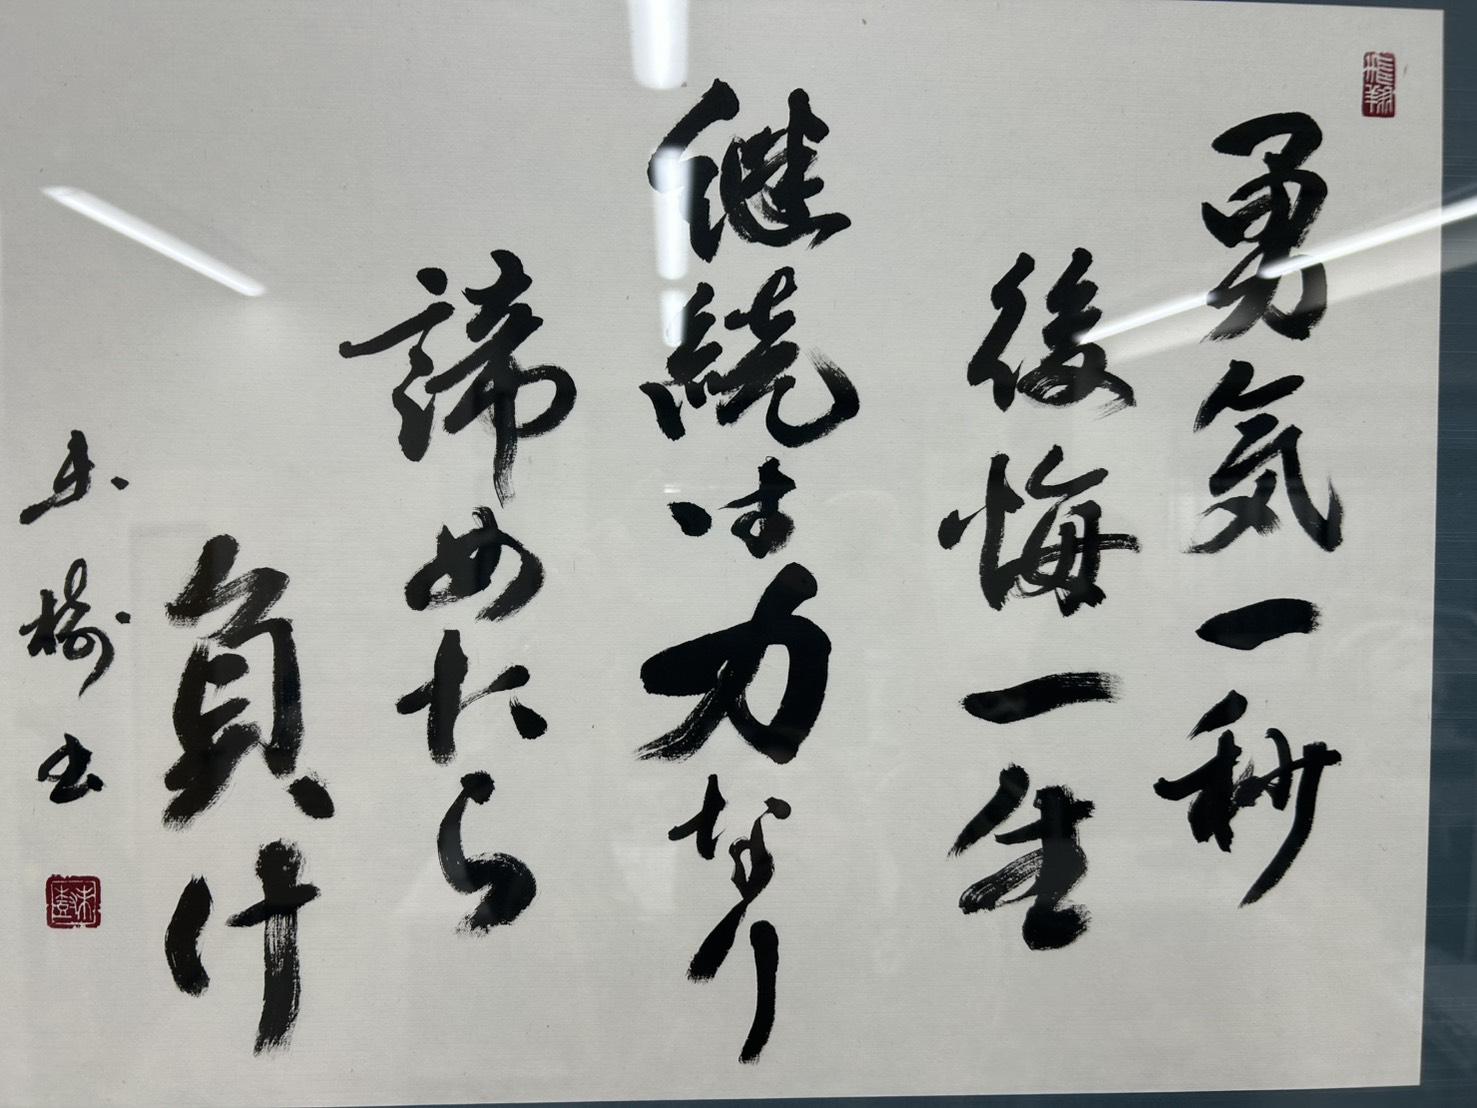 勇気一秒
後悔一生
継続は力なり
諦めたら
負け
樹書
飛翔